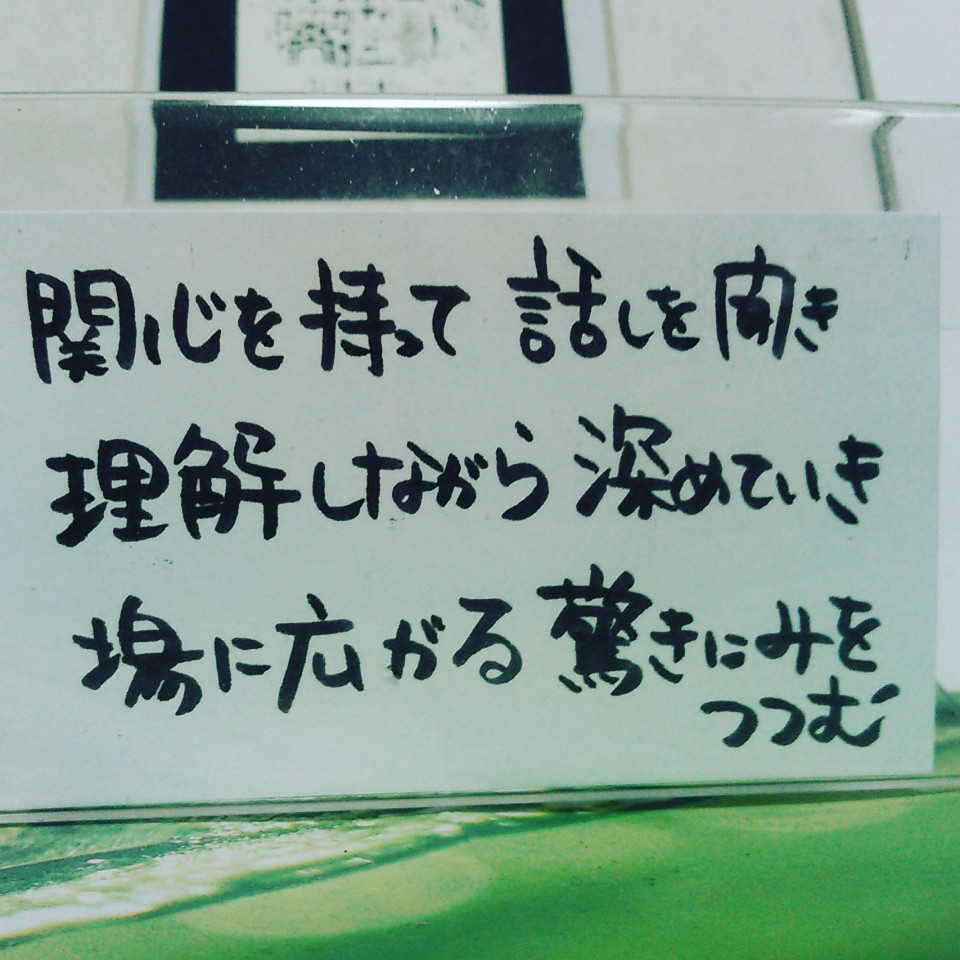 関心を持って 話しを聞き
理解しながら 深めていき
場に広がる 驚きにみを
つつむ